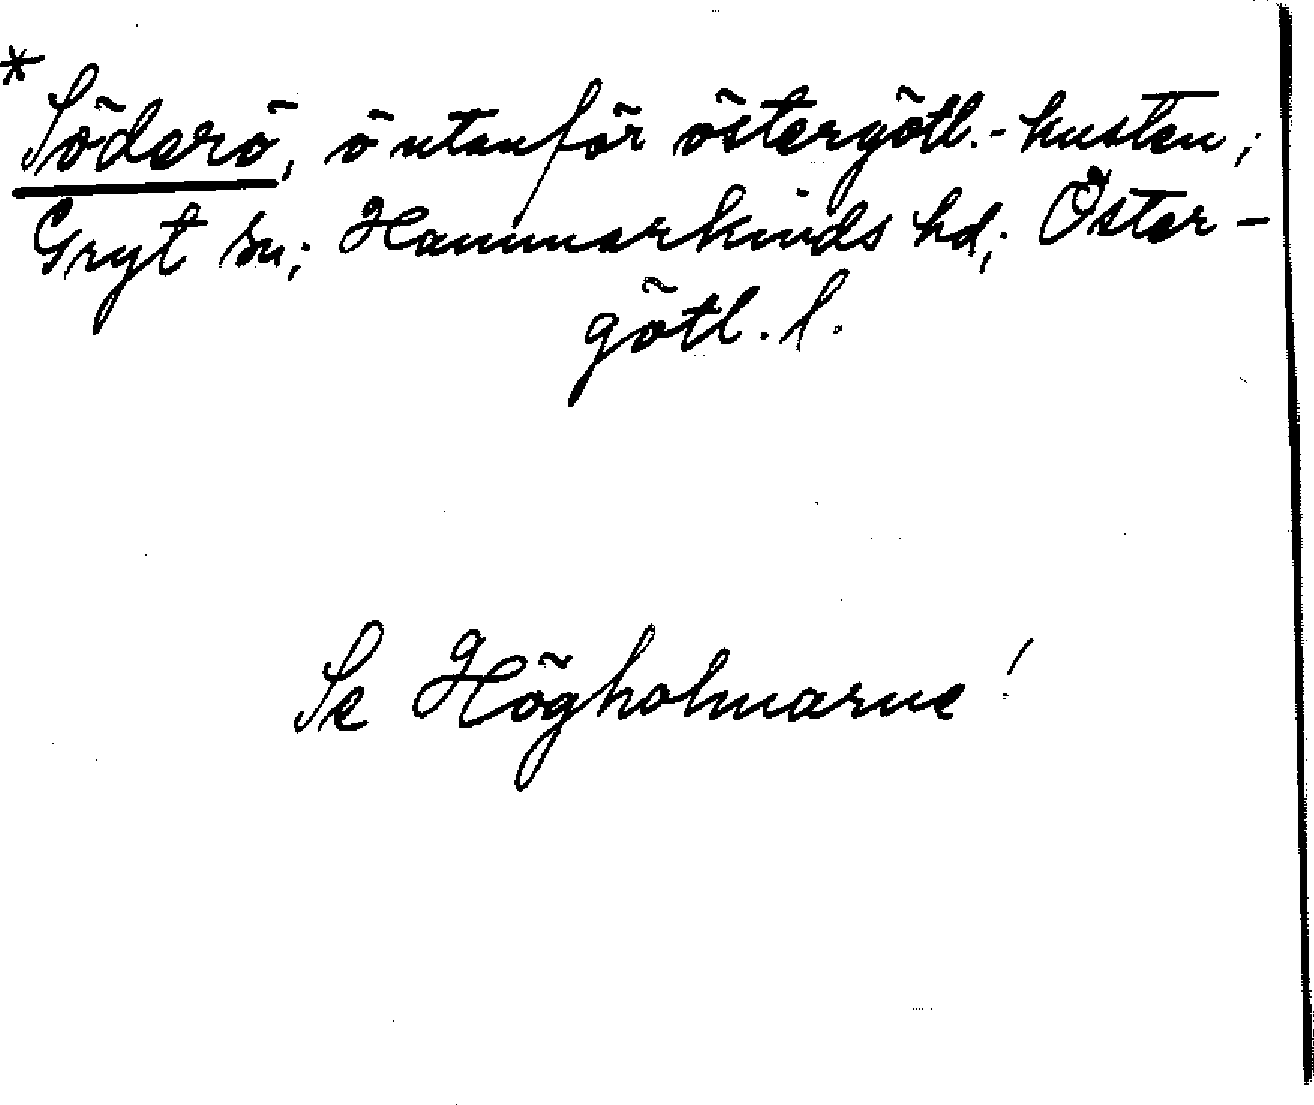 * Söderö, ö utanför östergötl.-kusten;
Gryt sn; Hammarkinds hd; Öster-
götl. l.
Se Högholmarne!